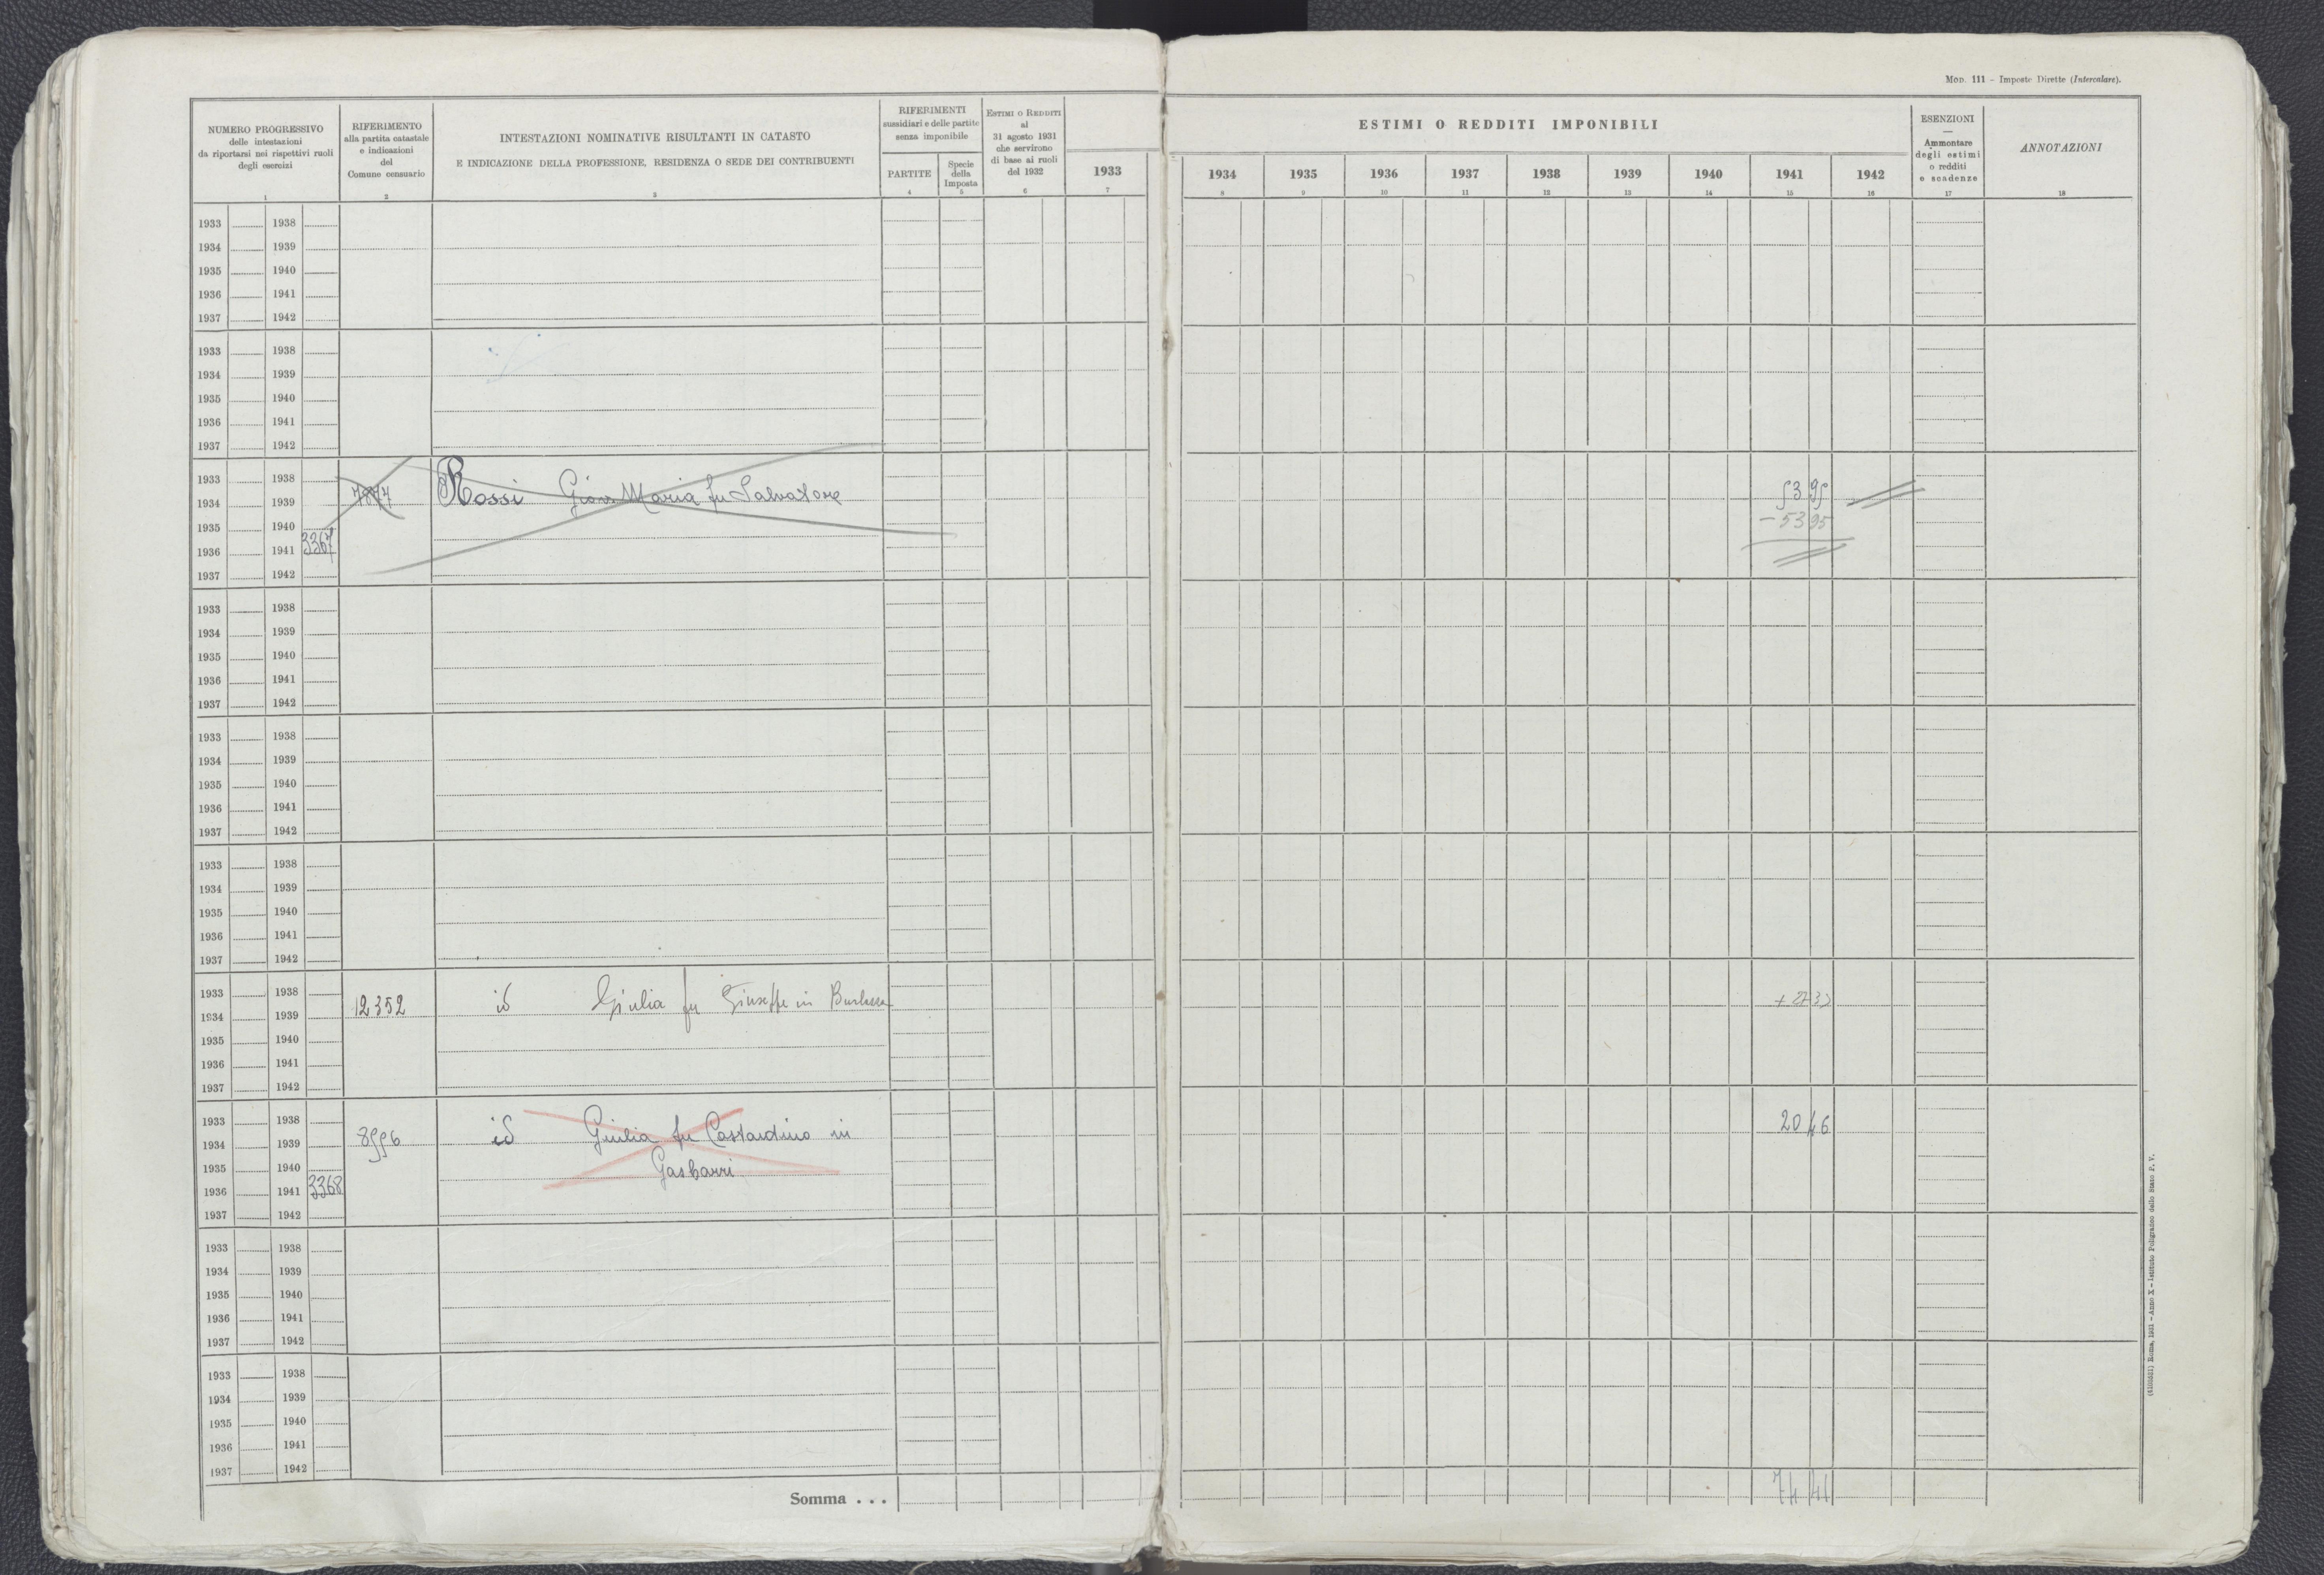 Mod. 111 – Imposte Dirette (Intercalare).
NUMERO PROGRESSIVO
delle intestazioni
da riportarsi nei rispettivi ruoli
degli esercizi
1
RIFERIMENTO
alla partita catastale
e indicazioni
del
Comune censuario
2
INTESTAZIONI NOMINATIVE RISULTANTI IN CATASTO
E INDICAZIONE DELLA PROFESSIONE, RESIDENZA O SEDE DEI CONTRIBUENTI
3
RIFERIMENTI
sussidiari e delle partite
senza imponibile
PARTITE
4
Specie
della
Imposta
5
ESTIMI O REDDITI
al
31 agosto 1931
che servirono
di base ai ruoli
del 1932
6
1933
7
ESTIMI O REDDITI IMPONIBILI
1934 1935 1936 1937 1938 1939 1940 1941 1942
8 9 10 11 12 13 14 15 16
ESENZIONI
—
Ammontare
degli estimi
o redditi
e scadenze
17
ANNOTAZIONI
18
1933 1938
1934 1939
1935 1940
1936 1941
1937 1942
1933 1938
1934 1939
1935 1940
1936 1941
1937 1942
1933 1938
1934 1939 Rossi Giov. Maria fu Salvatore 53 95
1935 1940 – 53 95
1936 1941 3367
1937 1942
1933 1938
1934 1939
1935 1940
1936 1941
1937 1942
1933 1938
1934 1939
1935 1940
1936 1941
1937 1942
1933 1938
1934 1939
1935 1940
1936 1941
1937 1942
1933 1938
1934 1939 12352 id Giulia fu Giuseppe in
1935 1940
1936 1941
1937 1942
1933 1938 20 46
1934 1939 8996 id Giulia fu Costardino in
1935 1940 Gasbarri
1936 1941 3368
1937 1942
1933 1938
1934 1939
1935 1940
1936 1941
1937 1942
1933 1938
1934 1939
1935 1940
1936 1941
1937 1942
Somma . . . 74 41
Roma, 1931 – Anno X – Istituto Poligrafico dello Stato P. V.